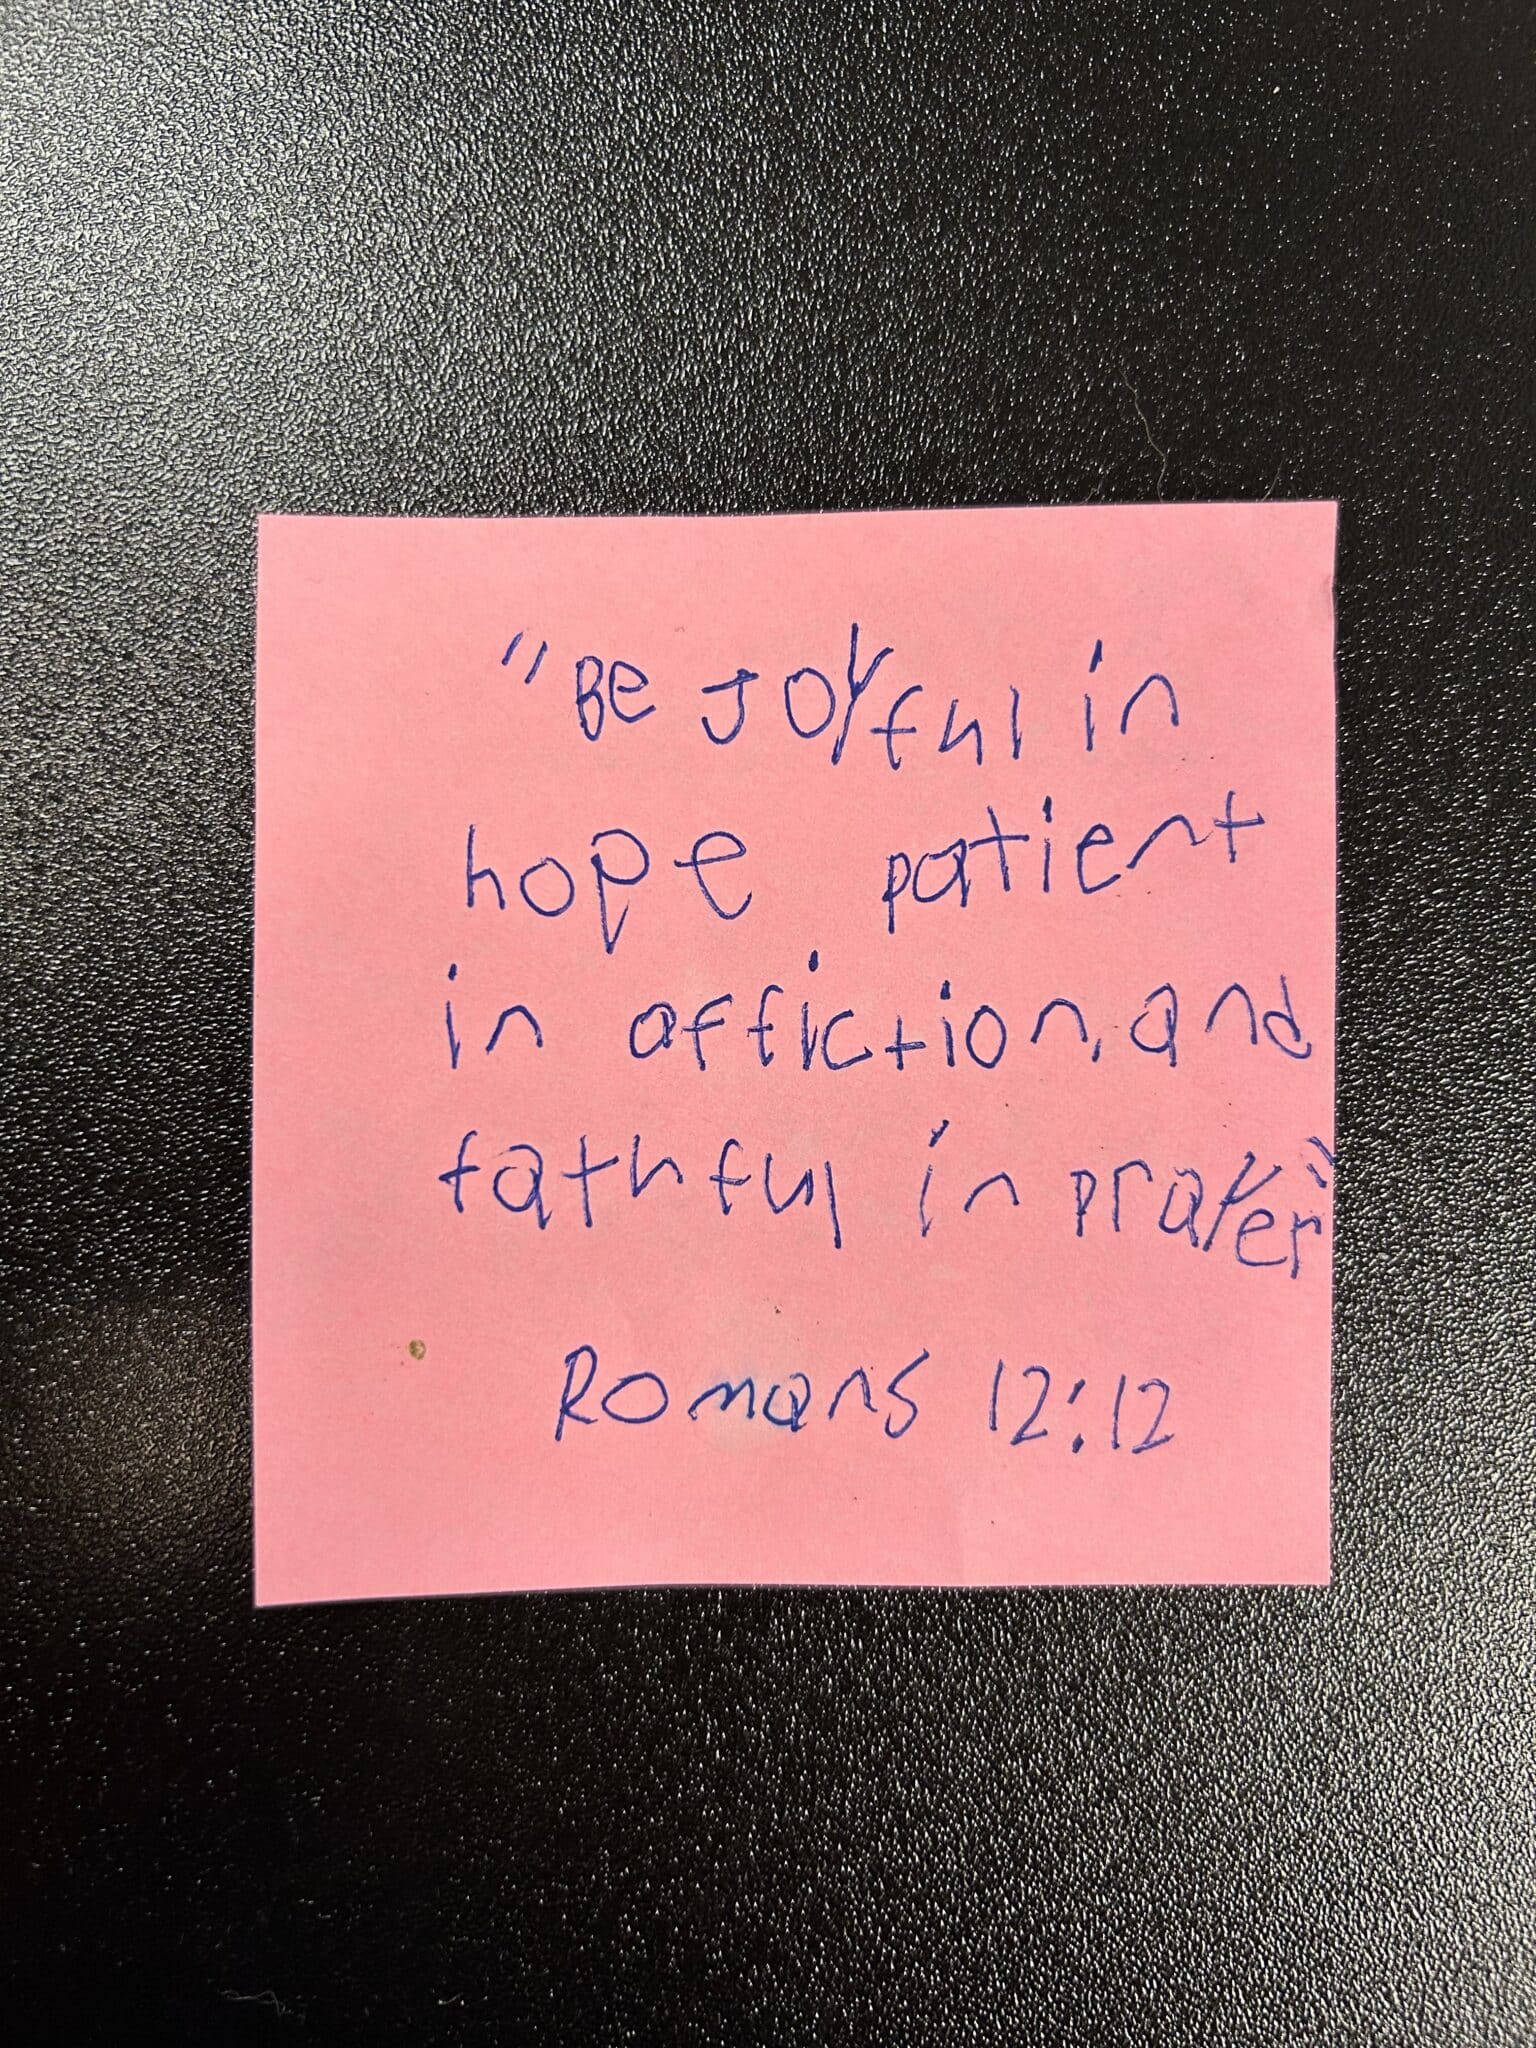 "Be Joyful in
hope patient
in affiction, and
fathful in prayer"
Romans 12:12